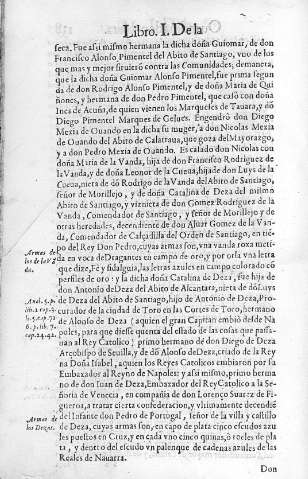 Libro. I. De la
seca. Fue assi mismo hermana la dicha doña Guiomar, de don
Francisco Alonso Pimentel del Abito de Santiago, vno de los
que mas y mejor siruiero contra las Comunidades; demanera,
que la dicha doña Guiomar Alonso Pimentel, fue prima segun
da de don Rodrigo Alonso Pimentel, y de doña Maria de Qui
ñones, y hermana de don Pedro Pimentel, que casó con doña
Ines de Acuña, de quien vienen los Marqueses de Tauara, y dō
Diego Pimentel Marques de Gelues. Engendrò don Diego
Mexia de Ouando en la dicha su muger, a don Nicolas Mexia
de Ouando del Abito de Calatraua, que goza del Mayorazgo,
y a don Pedro Mexia de Ouando. Es casado don Nicolas con
doña Maria de la Vanda, hija de don Francisco Rodriguez de
la Vanda, y de doña Leonor de la Cueua, hija de don Luys de la
Cueua, nieta de dō Rodrigo de la Vanda del Abito de Santiago,
señor de Morillejo, y de doña Catalina de Deza del mismo
Abito de Santiago, y viznieta de don Gomez Rodriguez de la
Vanda, Comendador de Santiago, y señor de Morillejo y de
otras heredades, decendiente de don Aluar Gomez de la Van
da, Comendador de Calçadilla del Orden de Santiago, en tiē
po del Rey Don Pedro, cuyas armas son, vna vanda roxa metida
Armas de
los de la Vā
da.
en voca de Dragantes en campo de oro, y por orla vna letra
que dize, Fè y fidalguia, las letras azules en campo colorado cō
perfiles de oro: y la dicha doña Catalina de Deza, fue hija de
don Antonio de Deza del Abito de Alcantara, nieta de dō Luys
de Deza del Abito de Santiago, hijo de Antonio de Deza, Pro
curador de la ciudad de Toro en las Cortes de Toro, hermano
de Alonso de Deza (a quien el gran Capitan embió desde Na
poles, para que diesse quenta del estado de las cosas que passa
uan al Rey Catolico) primo hermano de don Diego de Deza
Arçobispo de Seuilla, y de dō Alonso de Deza, criado de la Rey
na Doña Isabel, a quien los Reyes Catolicos embiaron por su
Embaxador al Reyno de Napoles: y assi mismo, primo herma
no de don Iuan de Deza, Embaxador del Rey Catolico a la Se
ñoria de Venecia, en compañia de don Lorenço Suarez de Fi
gueroa, a tratar cierta confederacion, y vltimamente decendiē
Armas de
los Deças.
del Infante don Pedro de Portugal, señor de la villa y castillo
de Deza, cuyas armas son, en capo de plata cinco escudos azu
les puestos en Cruz, y en cada vno cinco quinas, o roeles de pla
ta, y dentro del escudo vn palenque de cadenas azules de las
Reales de Nauarra.
Don